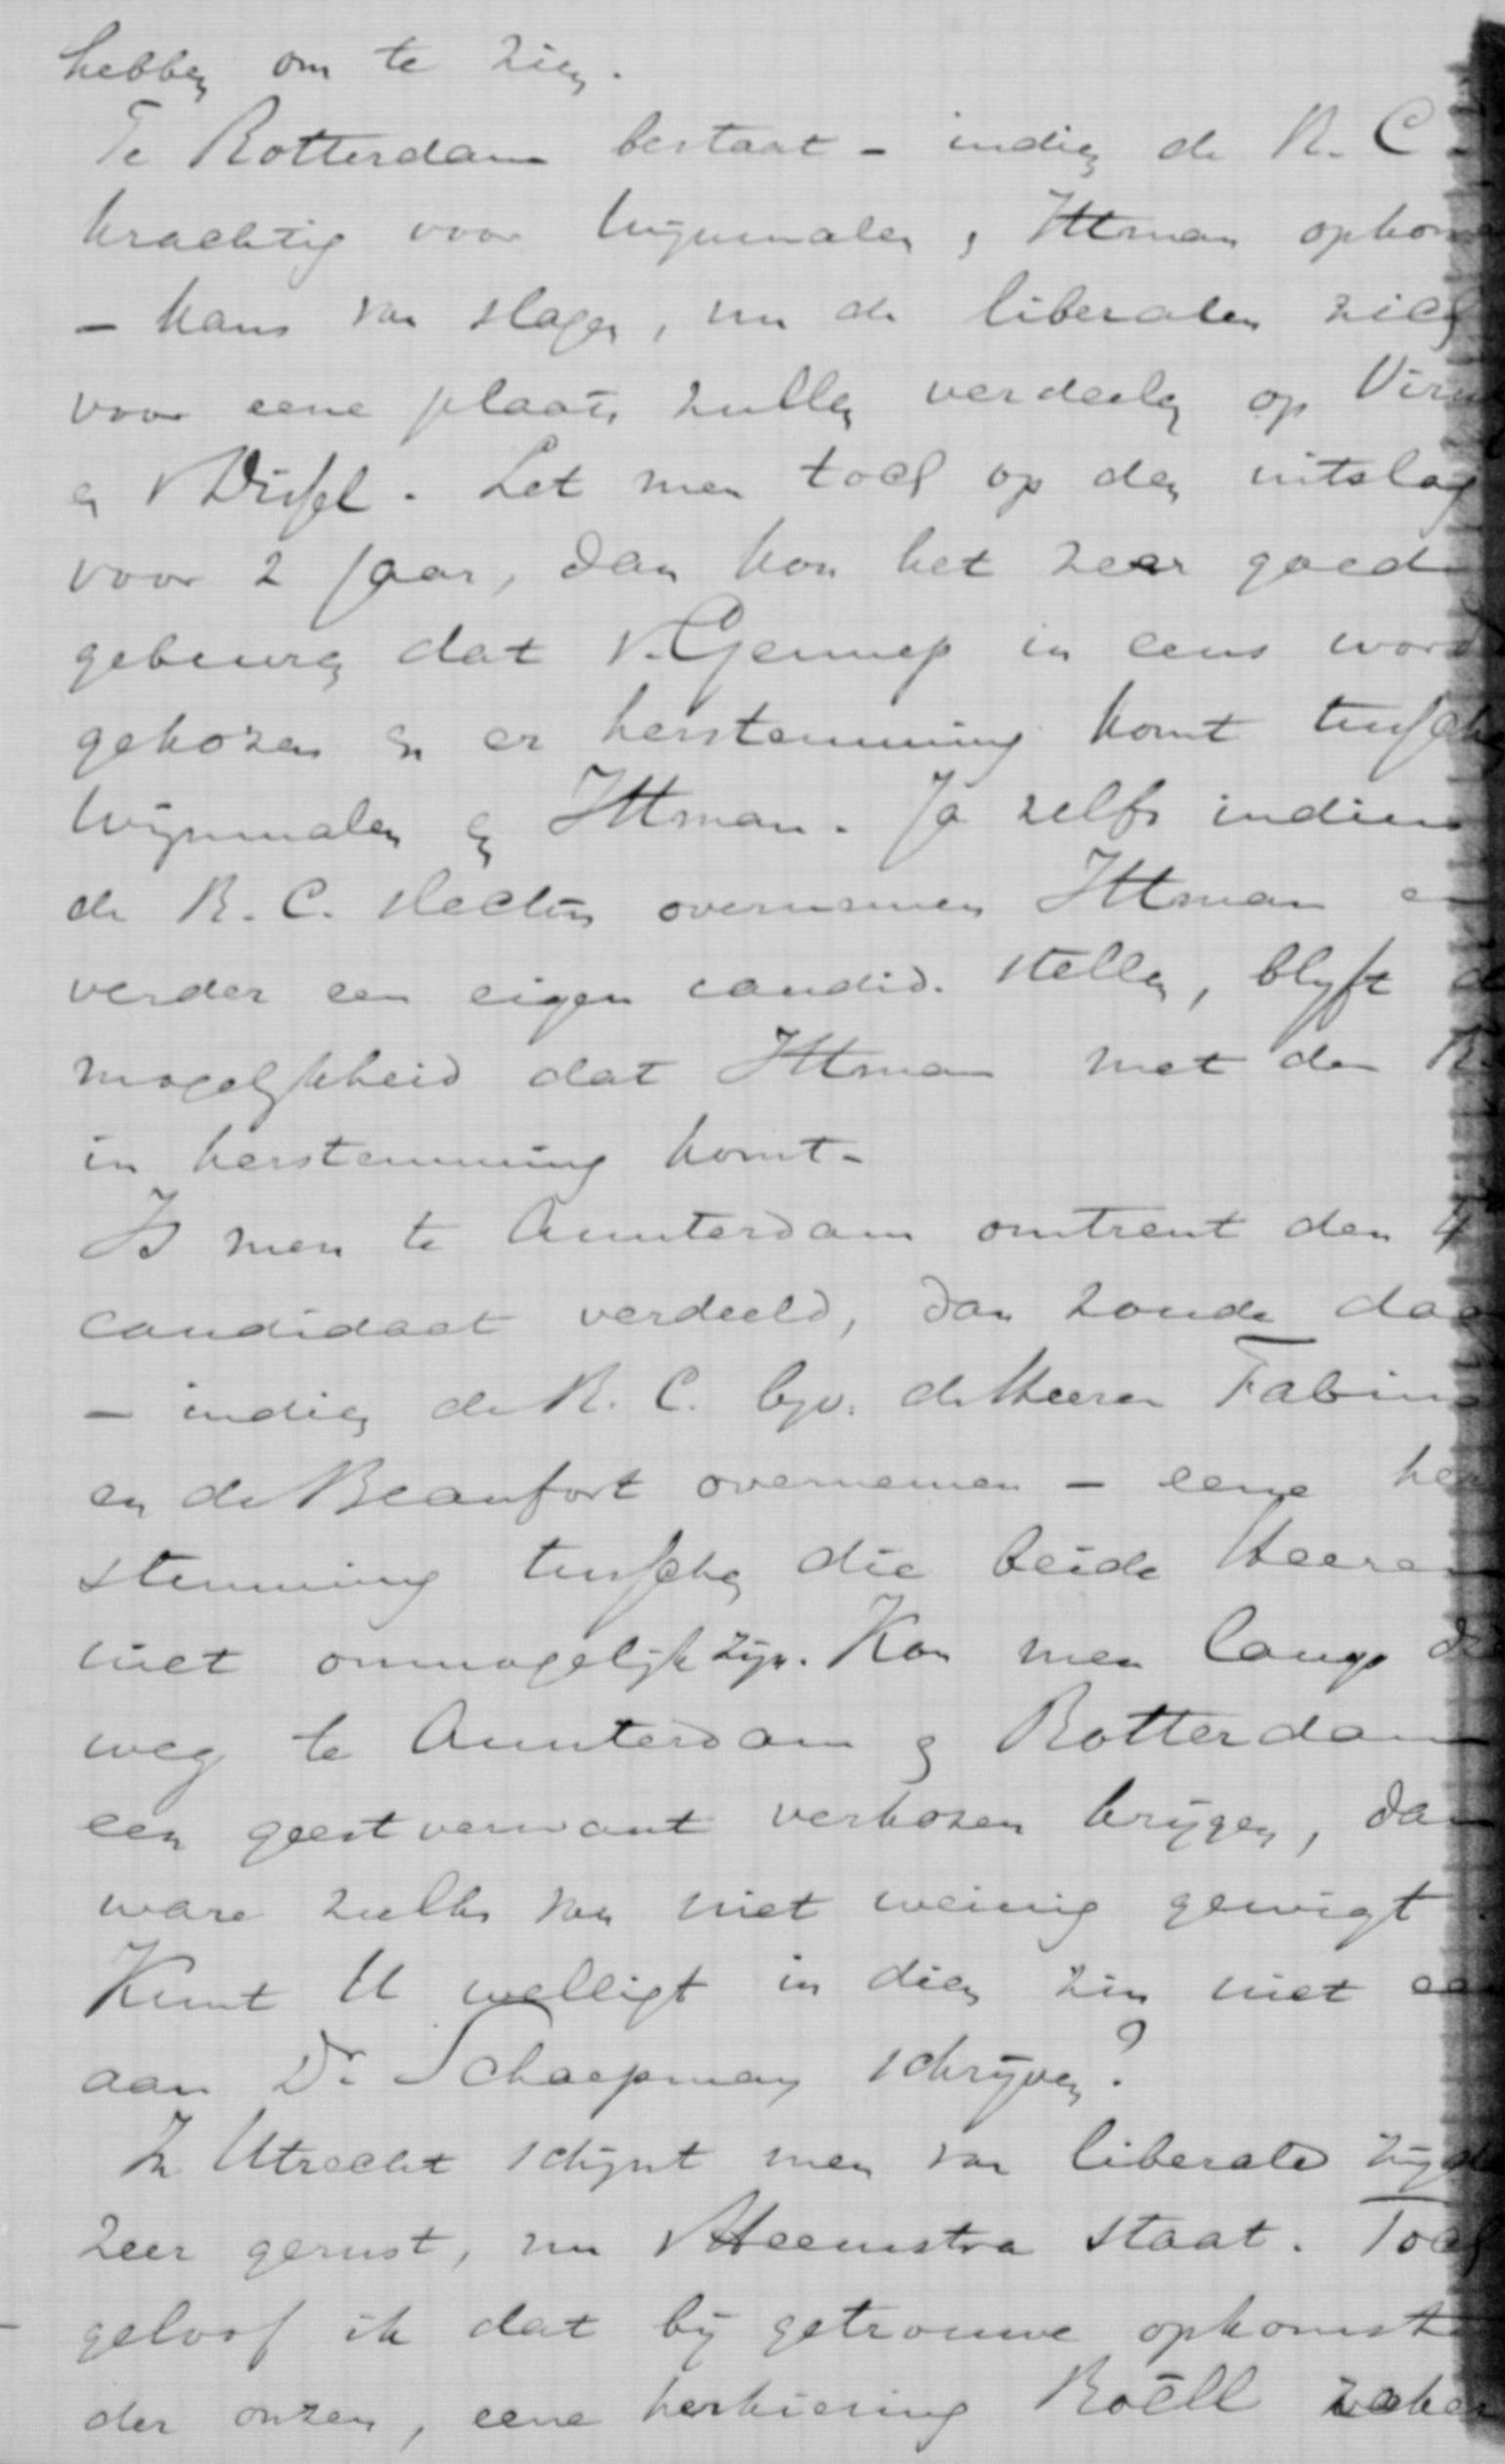 hebben om te zien.
Te Rotterdam bestaat – indien de R. C.
krachtig voor Wijnmalen, Ittman opkom
– kans van slagen, nu de liberalen zich
voor eene plaats zullen verdeelen op
en v Dissel. Let men toch op den uitslag
voor 2 jaar, dan kon het zeer goed
gebeuren dat v. Gennep in eens word
gekozen en er herstemming komt tussch
Wijnmalen en Ittman. Ja zelfs indien
de R. C. slechts overnemen Ittman en
verder een eigen candid. stellen, blyft d
mogelijkheid dat Ittman met den R.
in herstemming komt.
Is men te Amsterdam omtrent den 4
candidaat verdeeld, dan zoude daa
– indien de R. C. bijv. de Heeren Fabius
en de Beaufort overnemen – eene her
stemming tusschen die beide Heeren
niet onmogelijk zijn. Kon men langs d
weg te Amsterdam en Rotterdam
een geestverwant verkozen krijgen, dan
ware zulks van niet weinig gewigt.
Kunt U welligt in dien zin niet
aan Dr. Schaepman schrijven?
In Utrecht schijnt men van liberale zijde
zeer gerust, nu v Heemstra staat. Toch
geloof ik dat bij getrouwe opkomst
der onzen, eene herkiezing Roëll zeker